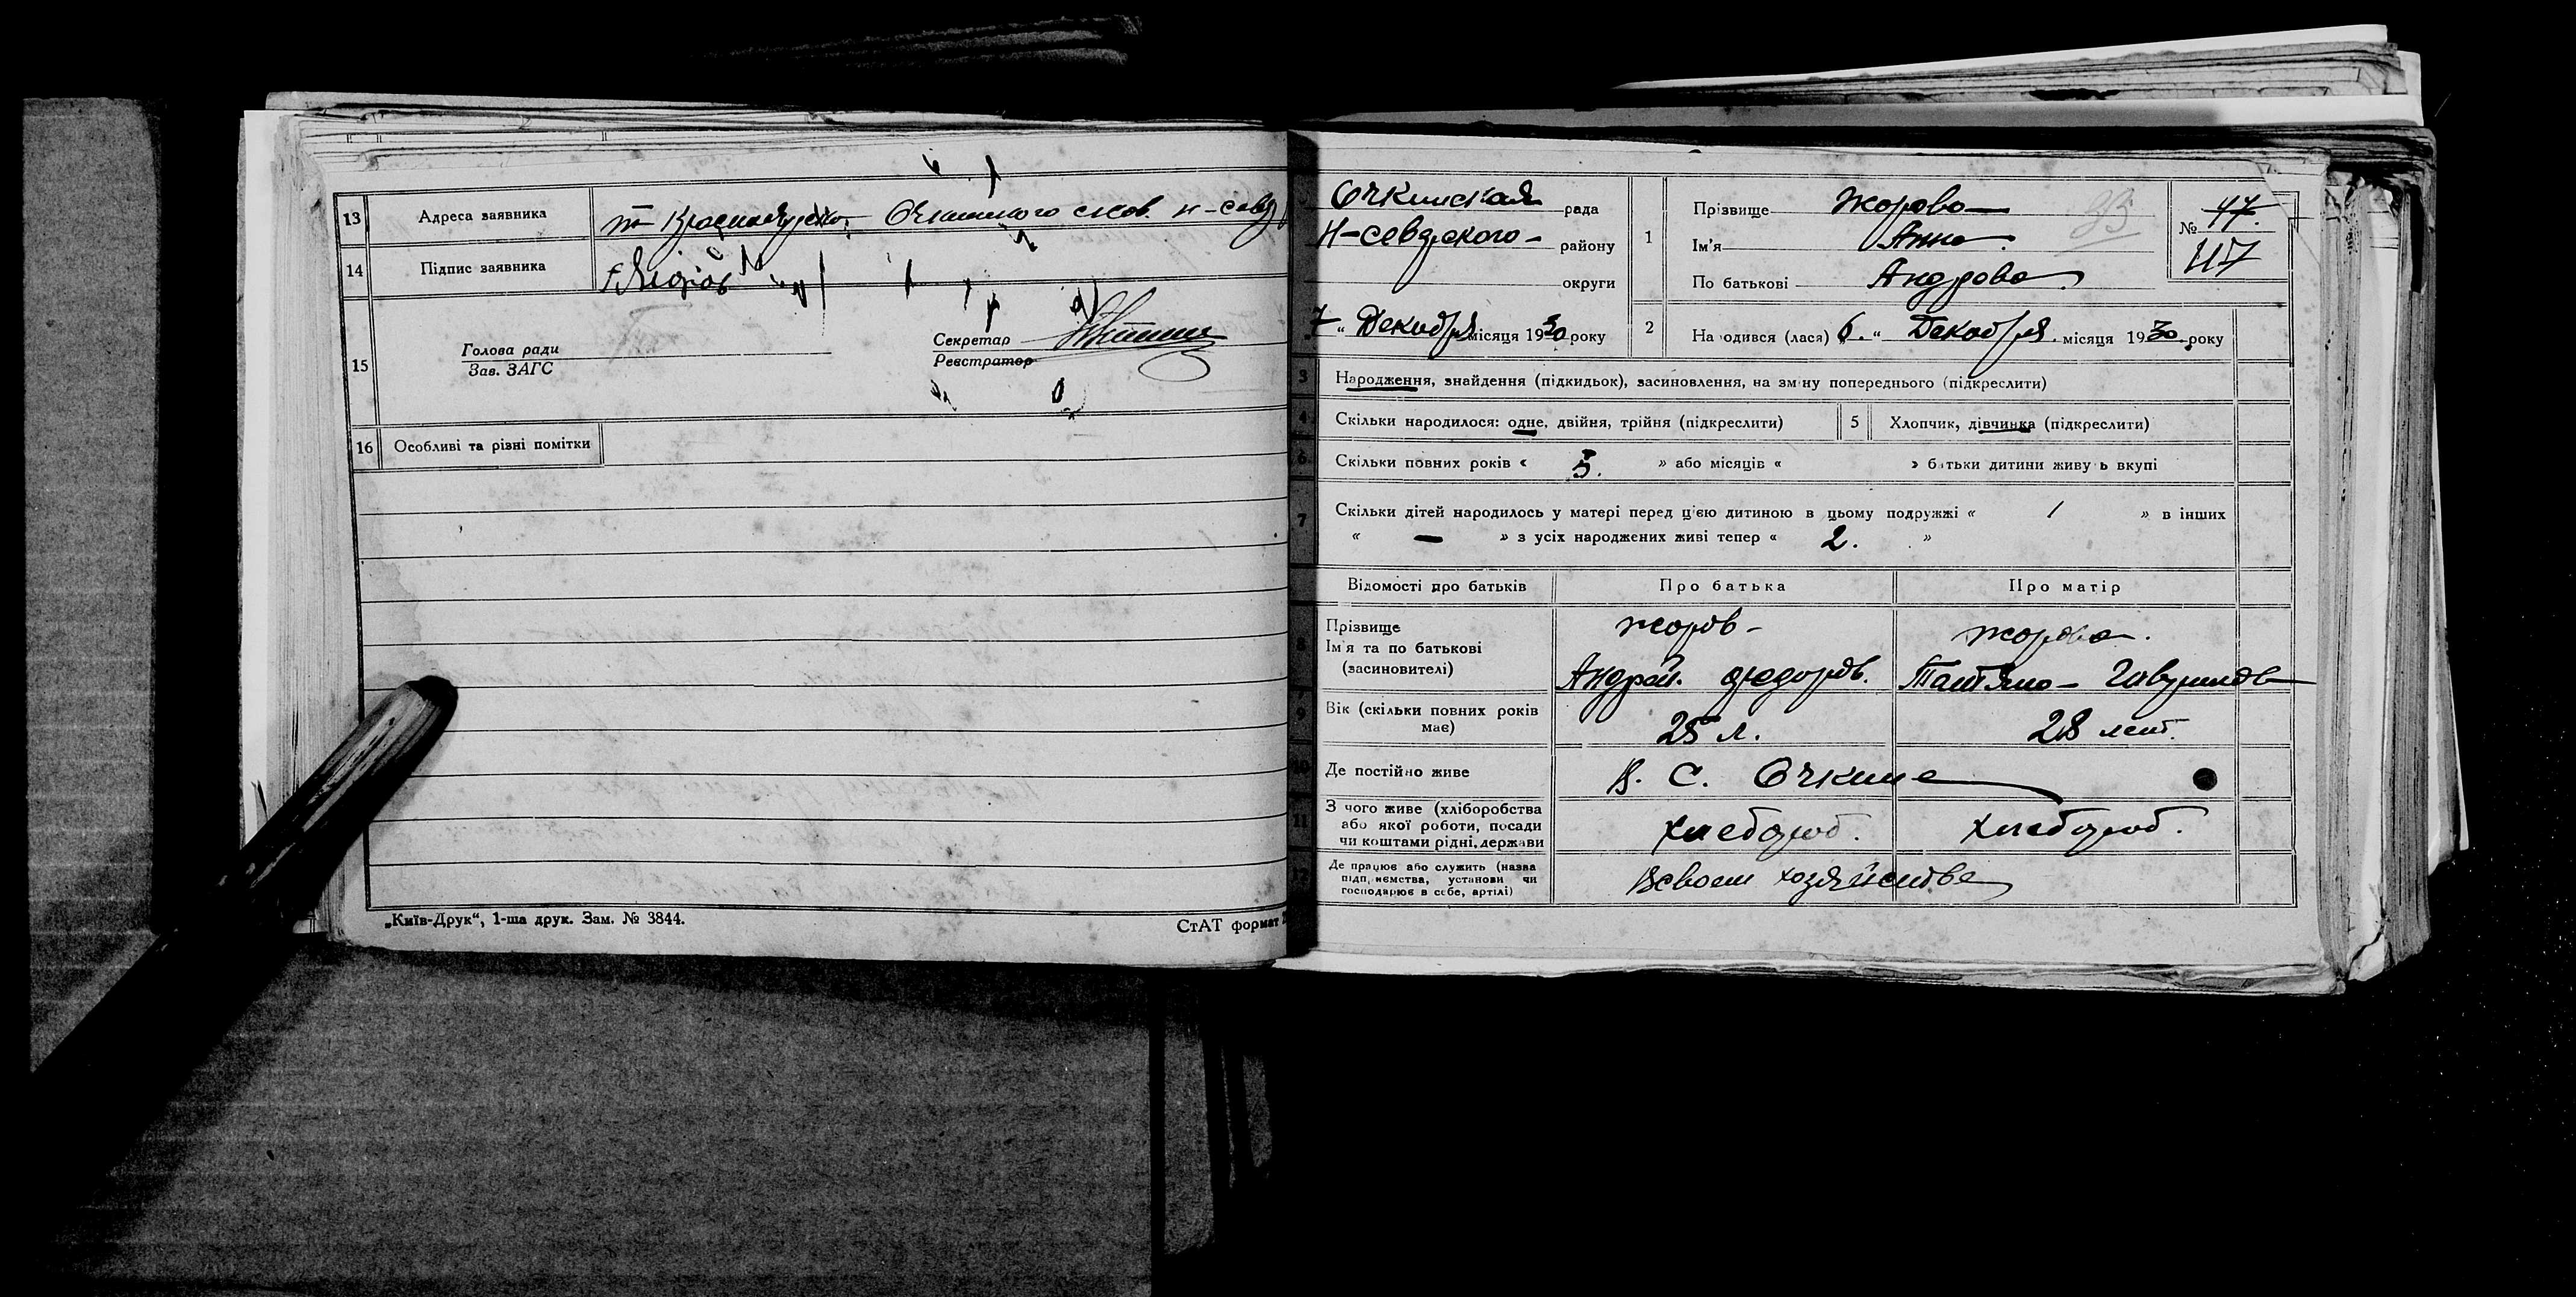 13 Адреса заявника
14 Підпис заявника
15 Голова ради
Зав. ЗАГС
Секретар
Реєстратор
16 Особливі та різні помітки
„Київ-Друк“, 1-ша друк. Зам. № 3844.
СтАТ формат
Очкинская рада
Н-севдского- району
округи
7 " Декабря місяця 1930 року
1 Прізвище Жорова
Ім'я Анна
По батькові Андрова
№ 47.
117
2 Народився (лася) „6. " Декабря місяця 1930 року
3 Народження, знайдення (підкидьок), засиновлення, на зміну попереднього (підкреслити)
4 Скільки народилося: одне, двійня, трійня (підкреслити)
5 Хлопчик, дівчинка (підкреслити)
6 Скільки повних років « 5. » або місяців « » батьки дитини живуть вкупі
7 Скільки дітей народилось у матері перед цією дитиною в цьому подружжі « 1 » в інших
« — » з усіх народжених живі тепер « 2. »
Відомості про батьків Про батька Про матір
8 Прізвище
Ім'я та по батькові
(засиновителі)
Жоров -
Андрей Федоров.
Жорова.
Татяна -
9 Вік (скільки повних років
має)
25 л. 28 лет.
10 Де постійно живе В. С. Очкине
11 З чого живе (хліборобства
або якої роботи, посади
чи коштами рідні, держави
хлебороб. хлебороб.
12 Де працює або служить (назва
підприємства, установи чи
господарює в себе, артілі)
В своем хозяйстве